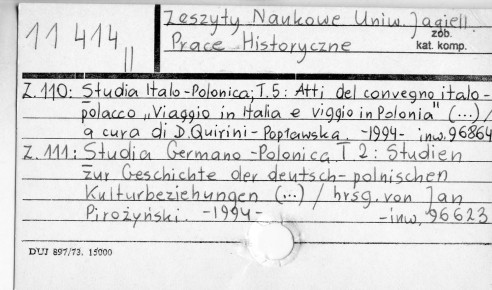 11 414 II
Zeszyty Naukowe Uniw. Jagiell.
Prace Historyczne
zob. kat. komp.
Z. 110: Studia Italo-Polonica, T. 5: Atti del convegno italo-
polacco „Viaggio in Italia e viggio in Polonia" (...) /
a cura di D. Quirini-Popławska. -1994- inw. 96864
Z. 111: Studia Germano-Polonica T 2: Studien
zur Geschichte der deutsch-polnischen
Kulturbeziehungen (...) / hrsg. von Jan
Pirożyński. -1994- -inw. 96623
DUJ 897/73. 15000